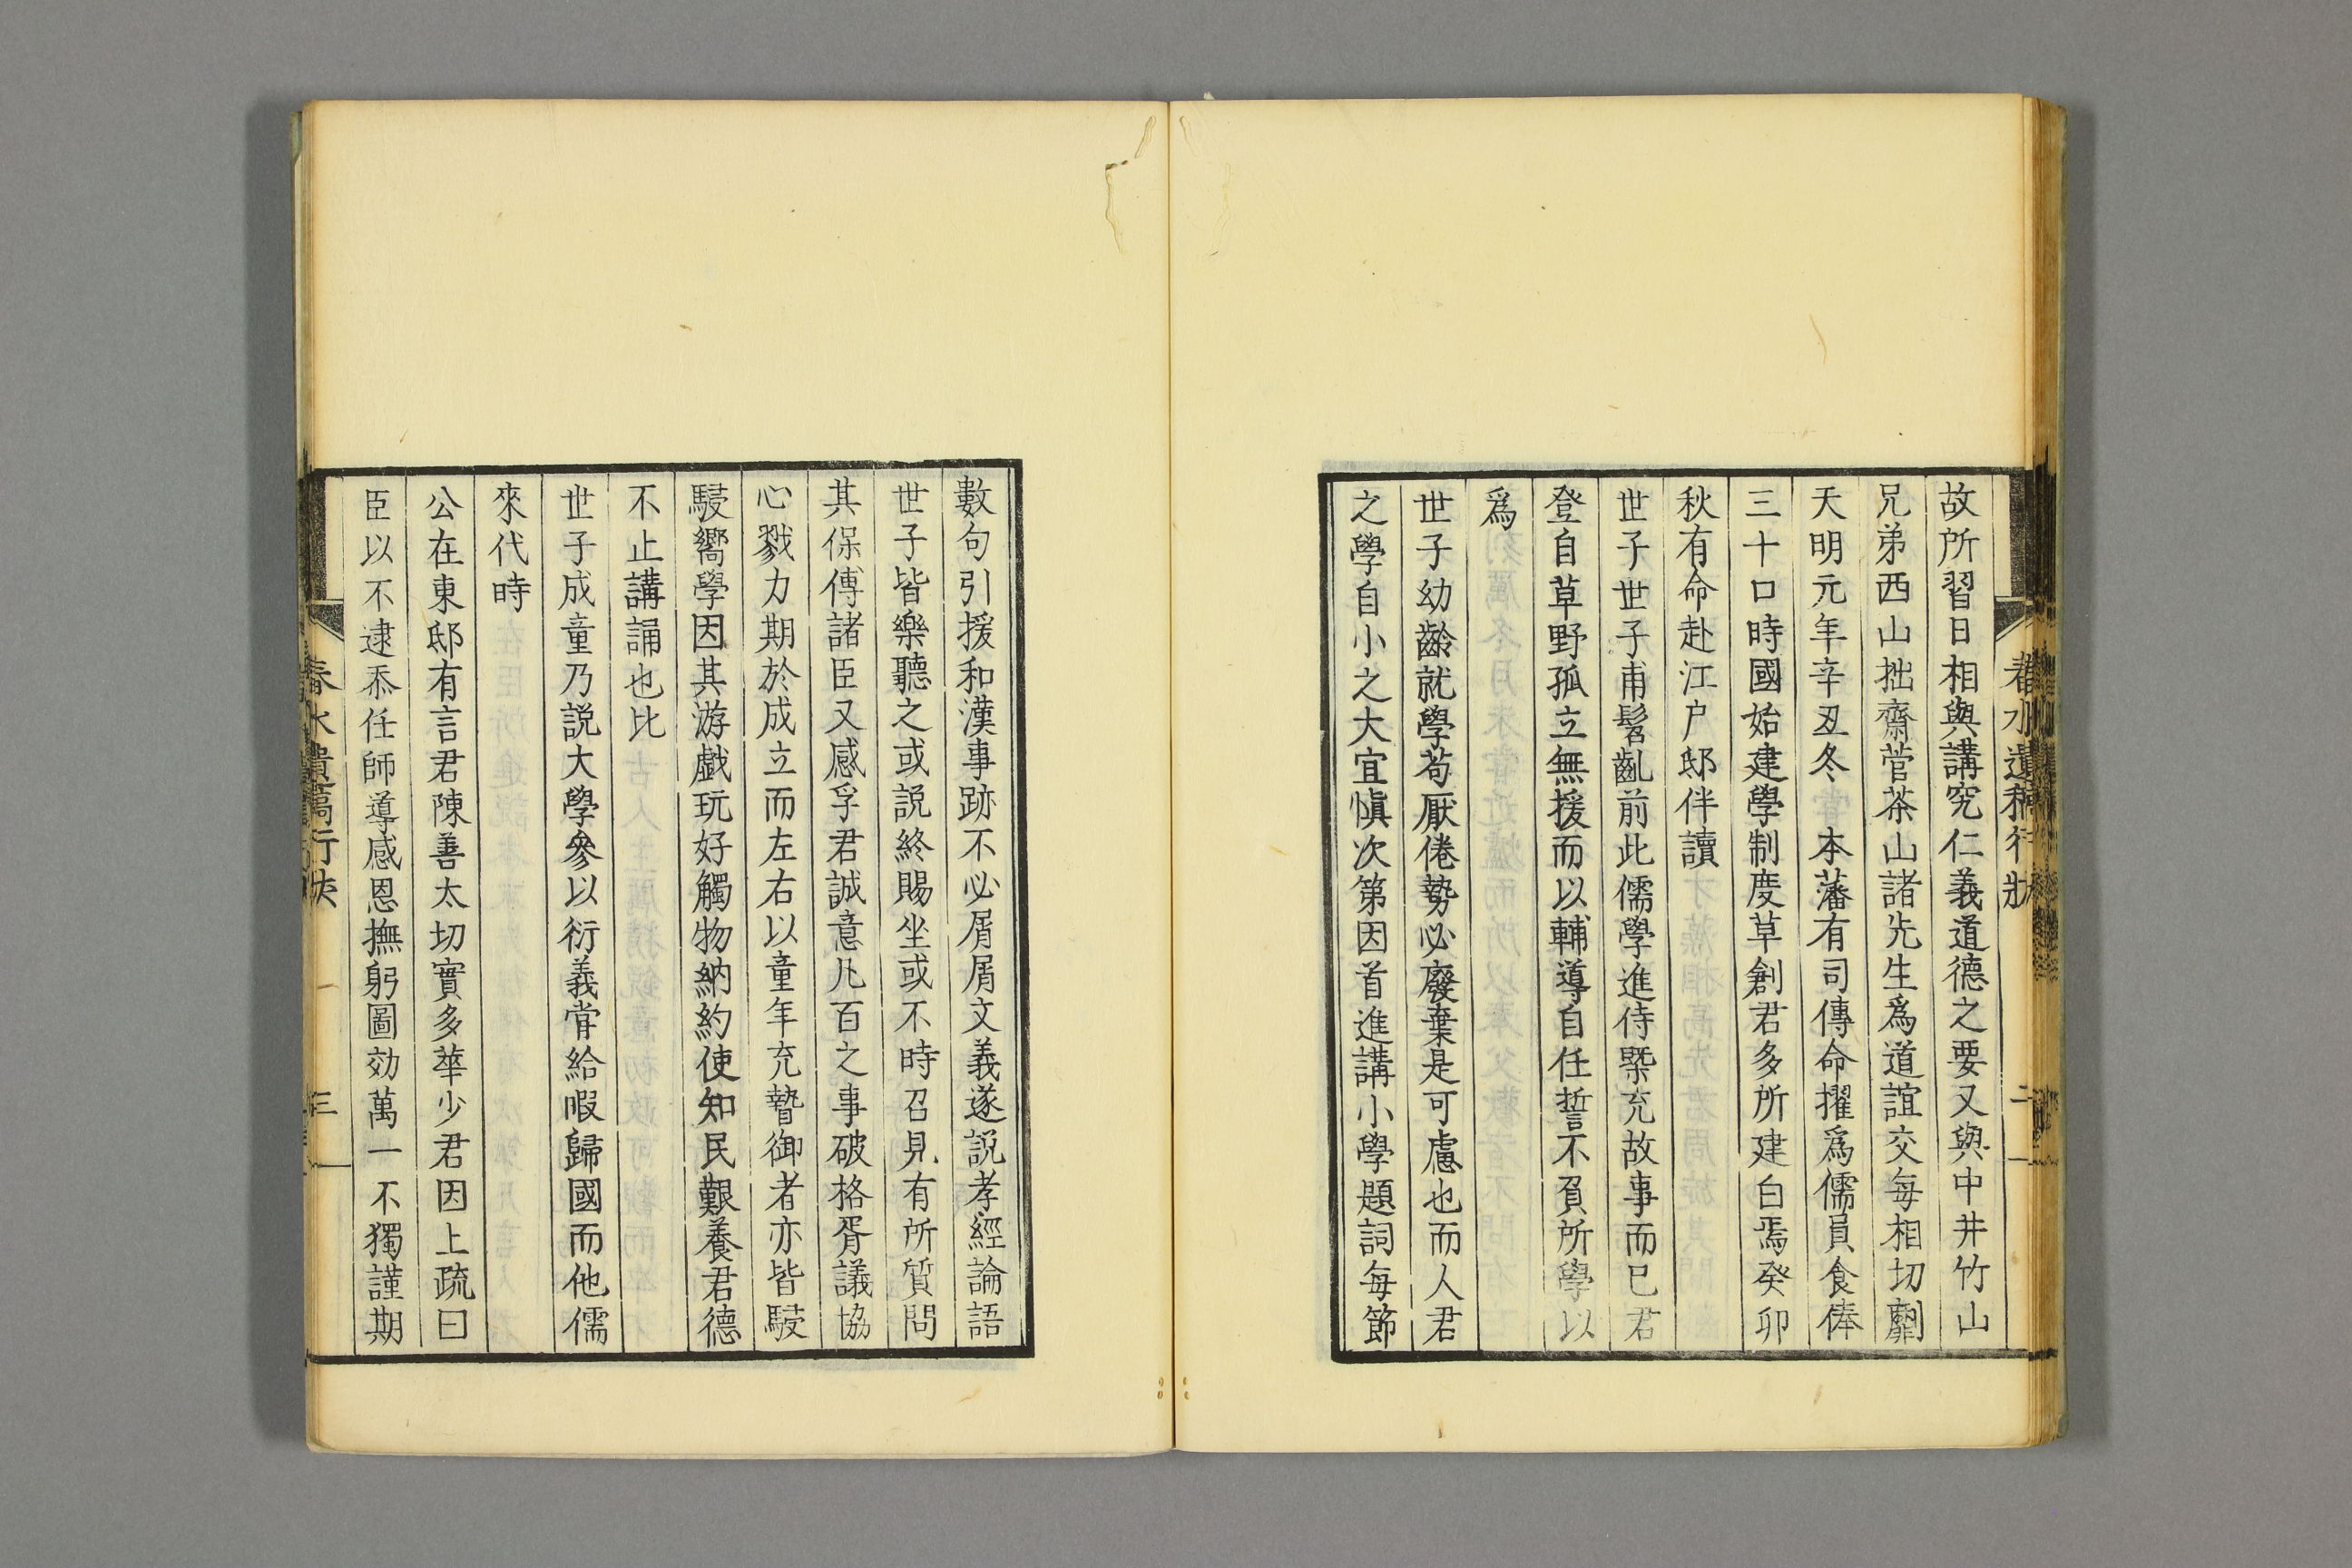 春水遺稿行狀
二
故所習日相與講究仁義道德之要又與中井竹山
兄弟西山拙齋菅茶山諸先生爲道誼交每相切劘
天明元年辛丑冬 本藩有司傳命擢爲儒員食俸
三十口時國始建學制度草創君多所建白焉癸卯
秋有命赴江戶邸伴讀
世子世子甫髫齓前此儒學進侍槩充故事而已君
登自草野孤立無援而以輔導自任誓不負所學以
爲
世子幼齡就學苟厭倦勢必廢棄是可慮也而人君
之學自小之大宜愼次第因首進講小學題詞每節
數句引援和漢事跡不必屑屑文義遂説孝經論語
世子皆樂聽之或説終賜坐或不時召見有所質問
其保傅諸臣又感孚君誠意凡百之事破格胥議協
心戮力期於成立而左右以童年充䞇御者亦皆駸
駸嚮學因其游戲玩好觸物納約使知民艱養君德
不止講誦也比
世子成童乃説大學參以衍義甞給暇歸國而他儒
來代時
公在東邸有言君陳善太切實多華少君因上疏曰
臣以不逮忝任師導感恩撫躬圖効萬一不獨謹期
春水遺稿行狀
三